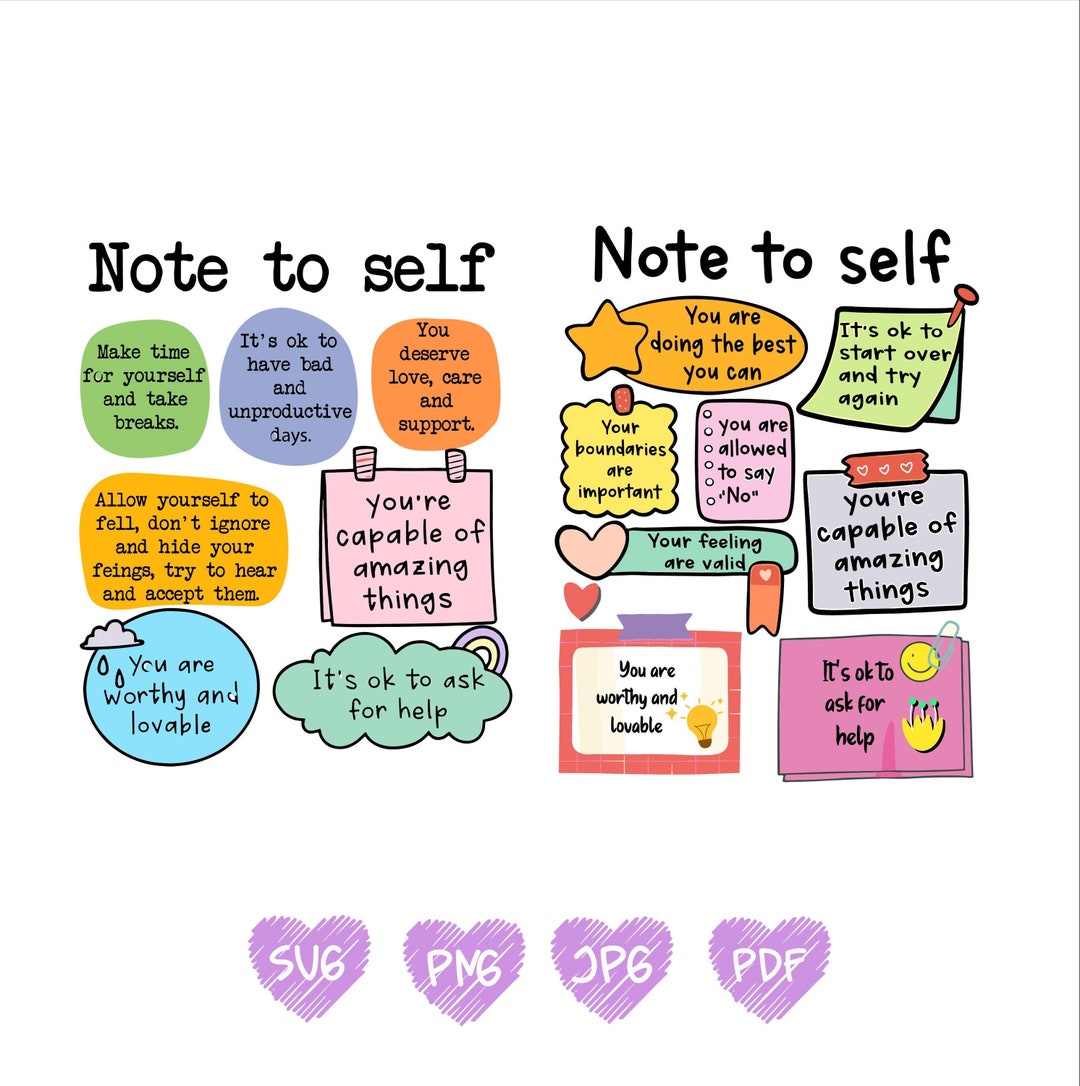 Note to self
Make time
for yourself
and take
breaks.
It's ok to
have bad
and
unproductive
days.
You
deserve
love, care
and
support.
Allow yourself to
fell, don't ignore
and hide your
feings, try to hear
and accept them.
you're
capable of
amazing
things
You are
worthy and
lovable
It's ok to ask
for help
Note to self
You are
doing the best
you can
It's ok to
start over
and try
again
Your
boundaries
are
important
you are
allowed
to say
"No"
you're
capable of
amazing
things
Your feeling
are valid
You are
worthy and
lovable
It's ok to
ask for
help
SVG
PNG
JPG
PDF